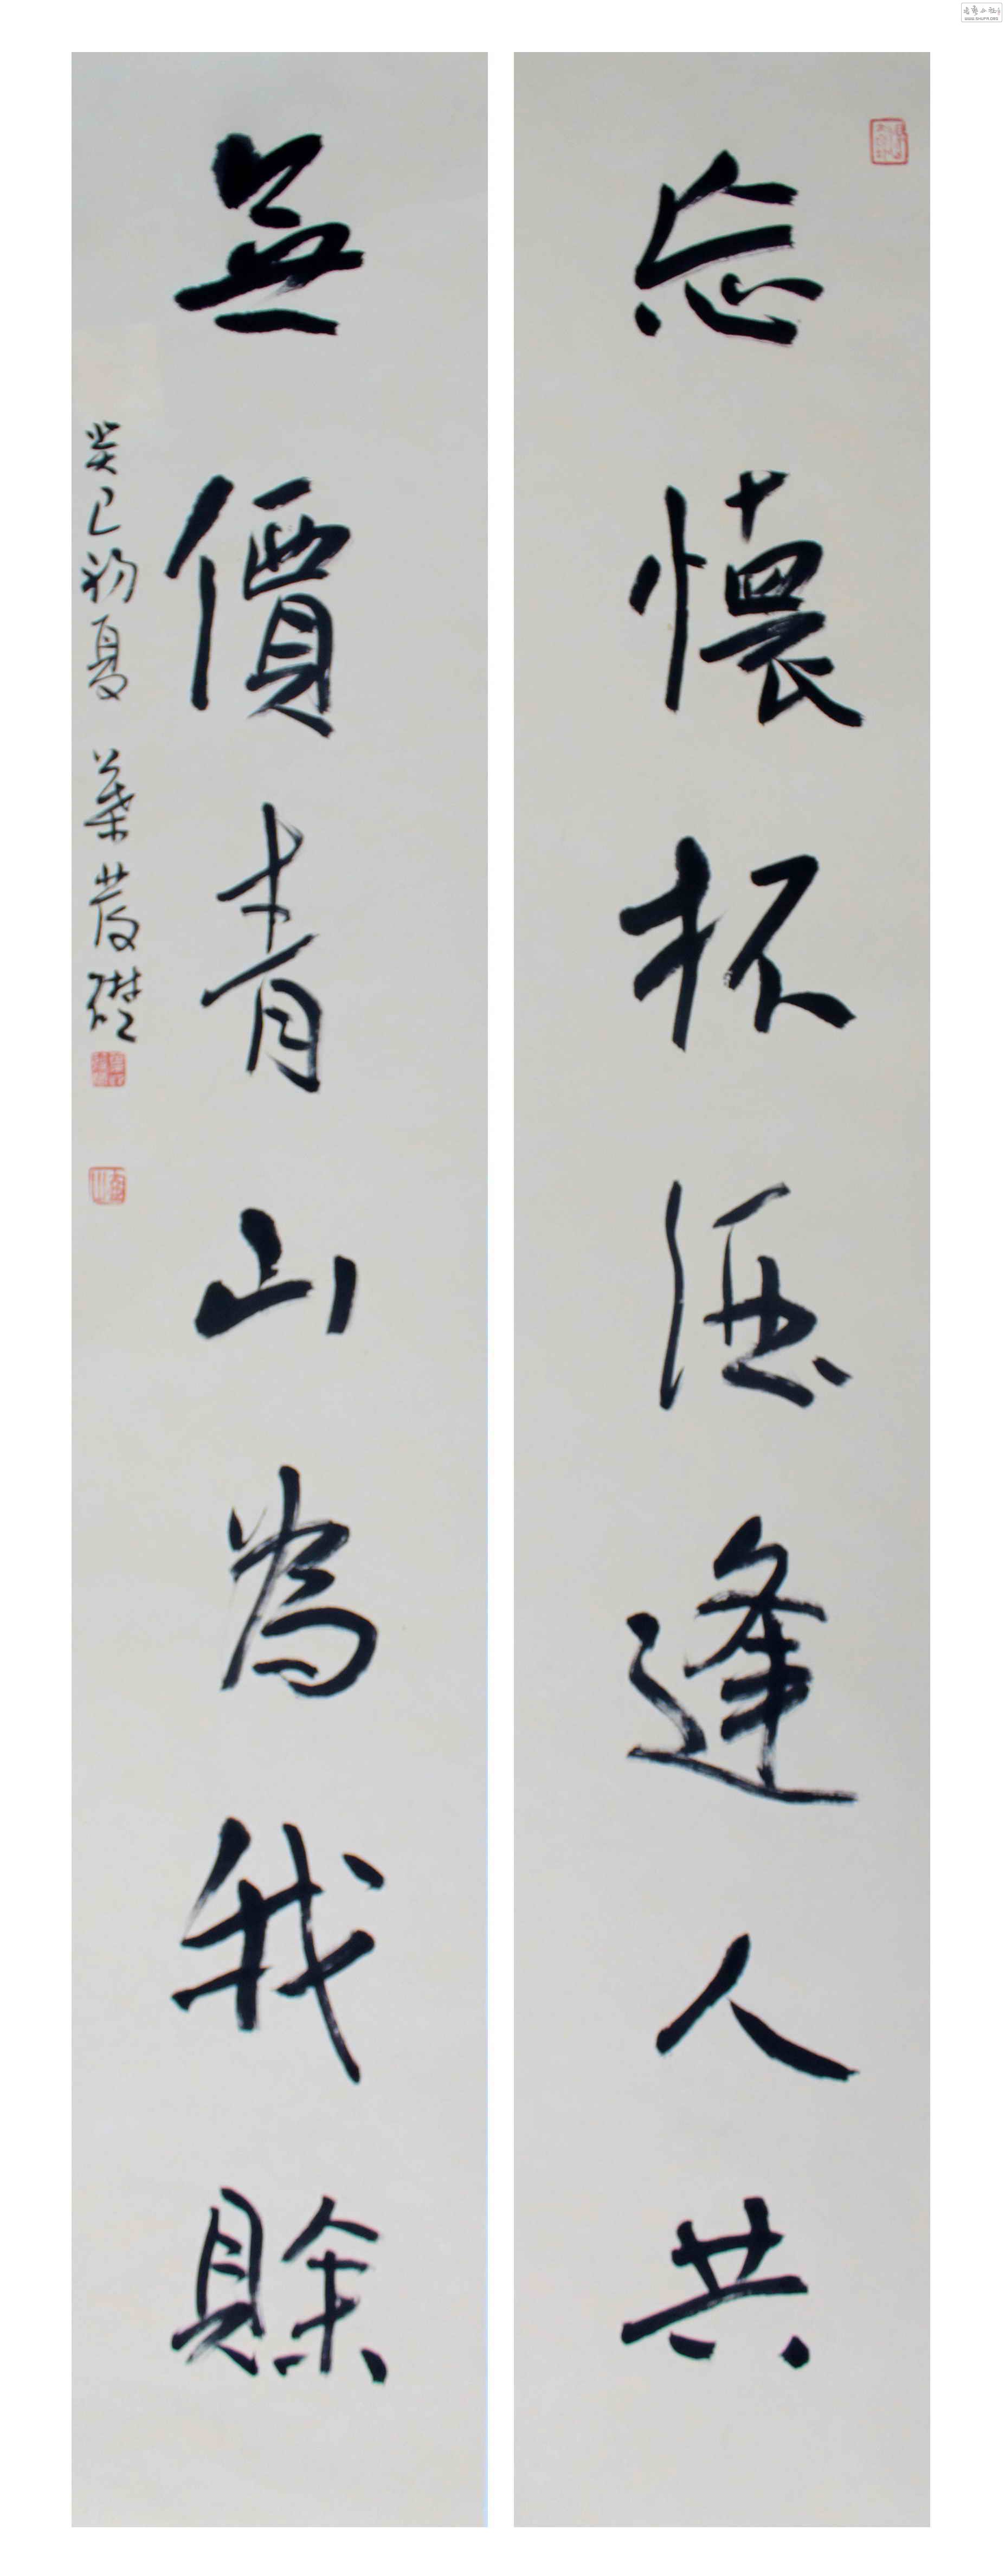 忘懷杯酒逢人共
無價青山為我賒
癸巳初夏 葉發礎